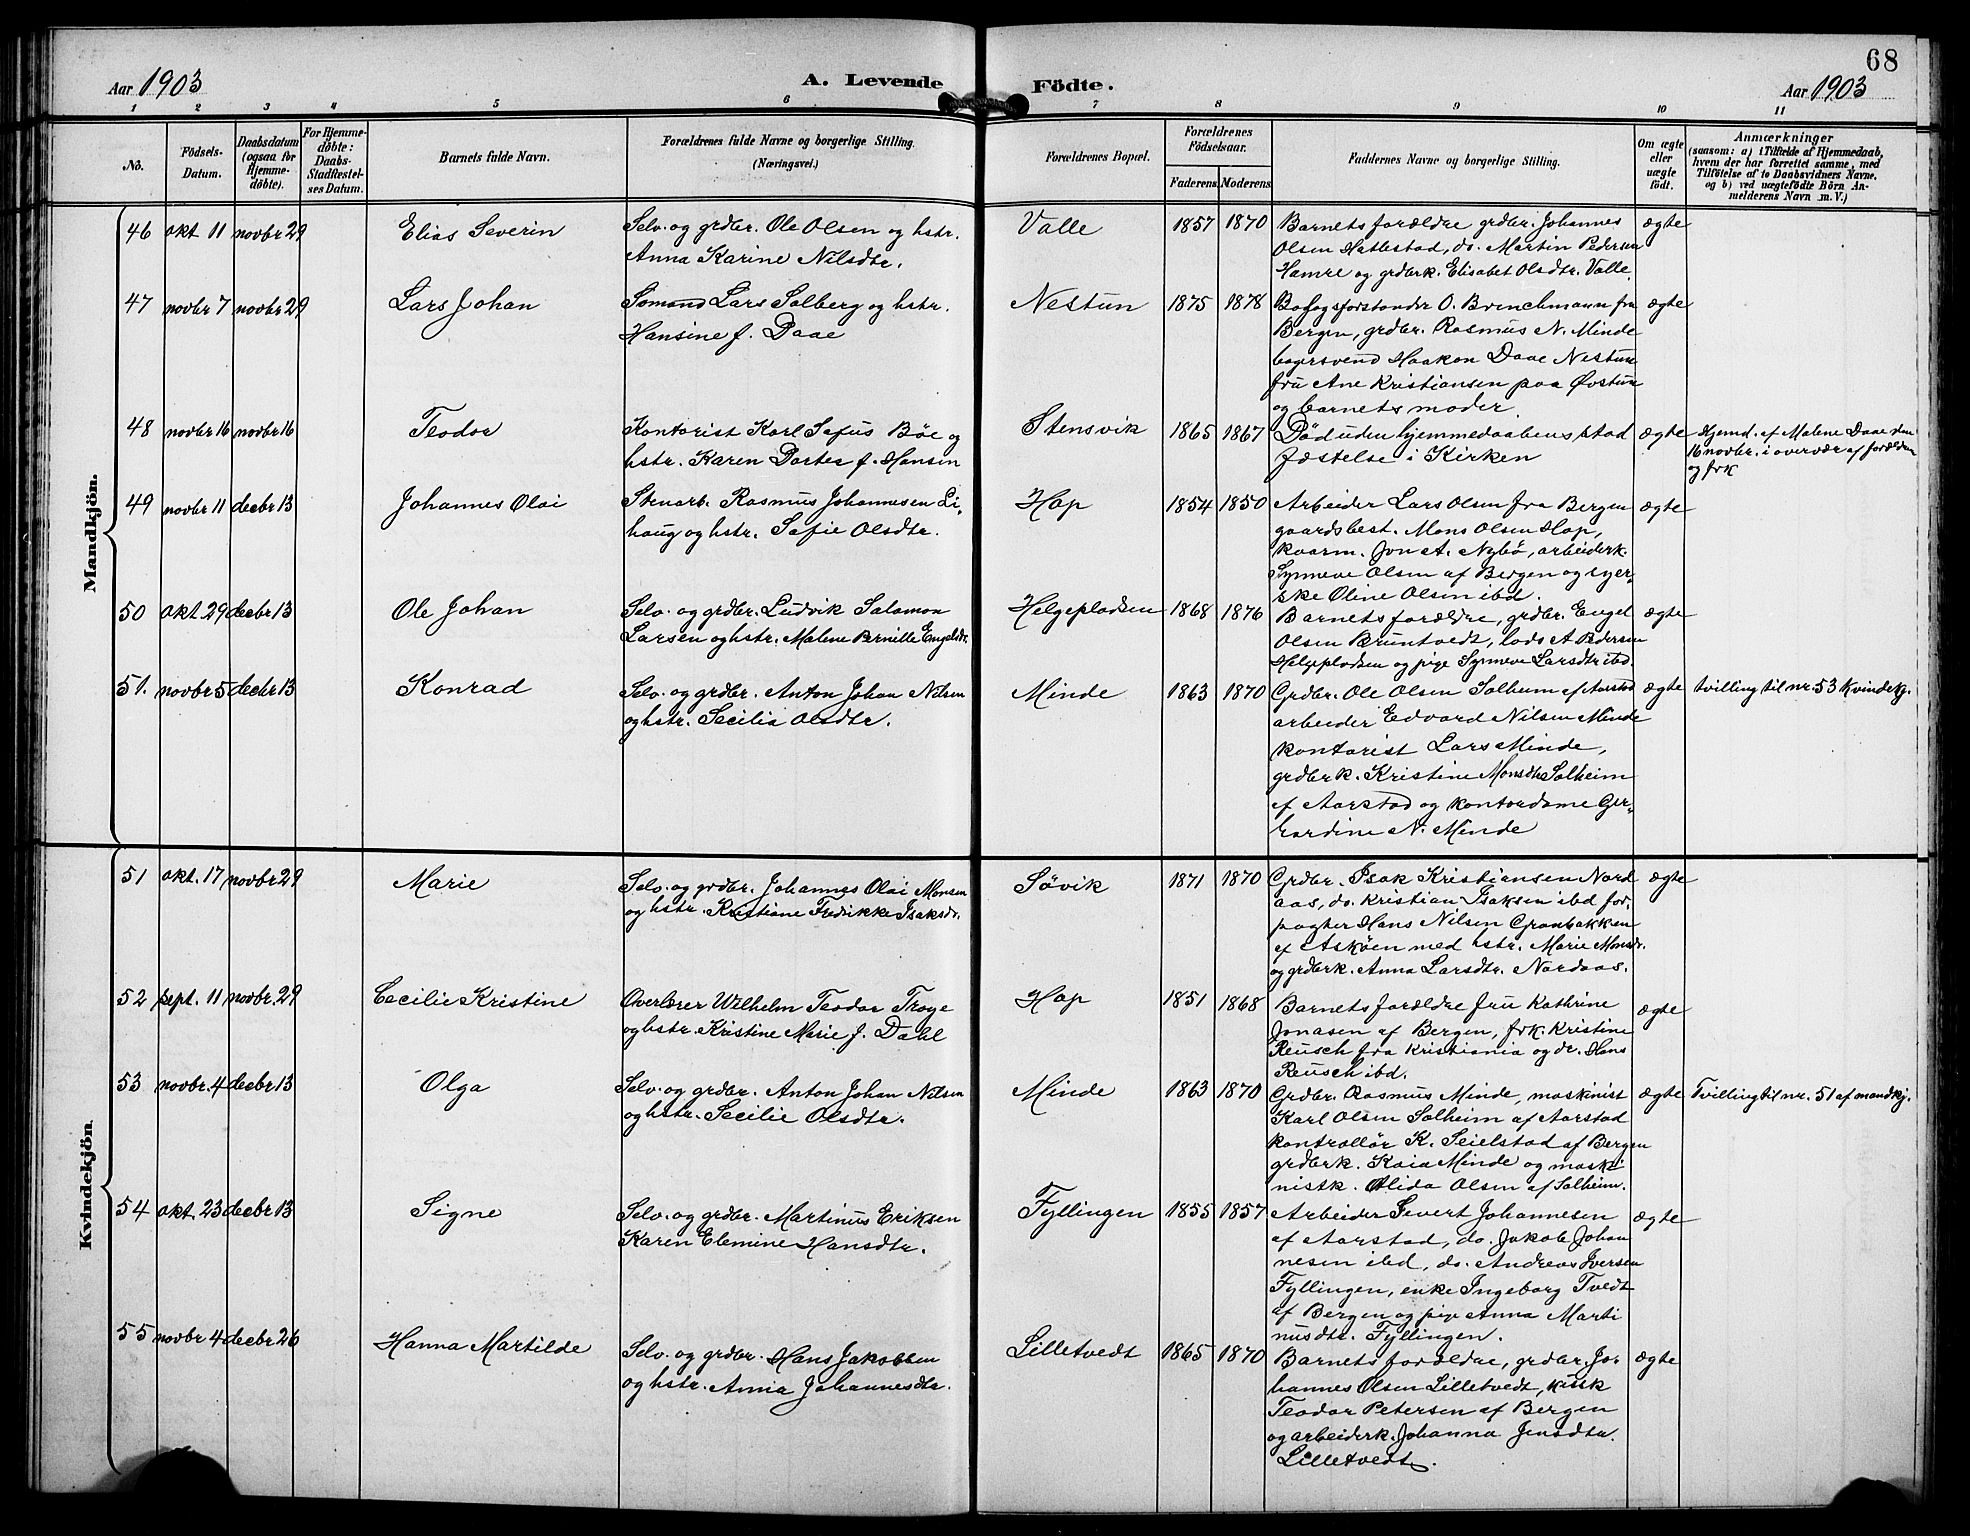 68
Aar 1903
A. Levende Födte.
Aar 1903
1 2 3 4 5 6 7 8 9 10 11
No.
Födsels-Datum.
Daabsdatum (ogsaa for Hjemme-döbte).
For Hjemme-döbte: Daabs-Stadfæstel-ses Datum.
Barnets fulde Navn.
Forældrenes fulde Navne og borgerlige Stilling.
(Næringsvei.)
Forældrenes Bopæl.
Forældrenes Födselsaar.
Faderens Moderens
Faddernes Navne og borgerlige Stilling.
Om ægte eller uægte födt.
Anmærkninger
(saasom: a) i Tilfælde af Hjemmedaab,
hvem der har forrettet samme, med
Tilföielse af to Daabsvidners Navne.
og b) ved uægtefödte Börn An-
melderens Navn m. V.)
Mandkjön.
46 okt 11 novbr 29 Elias Severin Selv. og grdbr. Ole Olsen og hstr. Valle 1857 1870 Barnets forældre grdbr. Johannes ægte
Anna Karine Nilsdtr. Olsen Hatlestad, do. Martin Pedersen
Hamre og grdbrk. Elisabet Olsdtr. Valle
47 novbr 7 novbr 29 Lars Johan Sømand Lars Solberg og hstr. Nestun 1875 1878 O. Brinchmann fra ægte
Hansine f. Daae Bergen, grdbr. Rasmus N. Minde
bagersvend Haakon Daae Nestun
fru Ane Kristiansen paa Øvstun
og barnets moder.
48 novbr 16 novbr 16 Teodor Kontorist Karl Sofus Böe og Stensvik 1865 1867 Död uden hjemmedaabens stad ægte Hjemd. af Malene Daae den
hstr. Karen Dortea f. Hansen fæstelse i Kirken 16 novbr. i overvær af forældre
og frk
49 novbr 11 decbr 13 Johannes Olai Stenarb. Rasmus Johannesen Li- Hop 1854 1850 Arbeider Lars Olsen fra Bergen ægte
haug og hstr. Sofie Olsdtr. gaardsbest. Mons Olsen Hop,
kaarm. Jon A. Nybö, arbeiderk.
Synneve Olsen af Bergen og syer-
ske Oline Olsen ibd.
50 okt 29 decbr 13 Ole Johan Selv. og grdbr. Ludvik Salomon Helgepladsen 1868 1876 Barnets forældre, grdbr. Engel ægte
Larsen og hstr. Malene Pernille Engelsdr. Olsen Bruntvedt, lods A Pedersen
Helgepladsen og pige Synneve Larsdtr ibd.
51. novbr 5 decbr 13 Konrad Selv. og grdbr. Anton Johan Nilsen Minde 1863 1870 Grdbr. Ole Olsen Solheim af Aarstad ægte tvilling til nr. 53 Kvindekj.
og hstr. Secilia Olsdtr. arbeider Edvard Nilsen Minde
kontorist Lars Minde,
grdbrk. Kristine Monsdtr Solheim
af Aarstad og kontordame Ger-
hardine N. Minde
Kvindekjön.
51 okt. 17 novbr 29 Marie Selv. og grdbr. Johannes Olai Monsen Sövik 1871 1870 Grdbr. Isak Kristiansen Nord ægte
og hstr. Kristiane Fredrikke Isaksdr. aas, do. Kristian Isaksen ibd for-
pagter Hans Nilsen Granbakken
af Asköen med hstr. Marie Monsdr.
og grdbrk. Anna Larsdtr. Nordaas.
52 sept. 11 novbr. 29 Cecilie Kristine Overlærer Wilhelm Teodor Troye Hop 1851 1868 Barnets forældre fru Kathrine ægte
og hstr. Kristine Marie f. Dahl Jonasen af Bergen, frk. Kristine
Reusch fra Kristiania og dr. Hans
Reusch ibd.
53 novbr. 4 decbr 13 Olga Selv. og grdbr. Anton Johan Nilsen Minde 1863 1870 Grdbr. Rasmus Minde, maskinist ægte Tvilling til nr. 51 af mandkj.
og hstr. Secilie Olsdtr. Karl Olsen Solheim af Aarstad
kontrollör K. Seielstad af Bergen
grdbrk. Kaia Minde og maski-
nistk. Alida Olsen af Solheim.
54 okt. 23 decbr 13 Signe Selv. og grdbr. Martinus Eriksen Fyllingen 1855 1857 Arbeider Severt Johannesen ægte
Karen Elemine Hansdtr. af Aarstad, do. Jakob Johan
nesen ibd, do. Andreas Iversen
Fyllingen, enke Ingeborg Tvedt
af Bergen og pige Anna Marti
nusdtr. Fyllingen.
55 novbr 4 decbr 26 Hanna Martilde Selv. og grdbr. Hans Jakobsen Lilletvedt 1865 1870 Barnets forældre, grdbr. Jo- ægte
og hstr. Anna Johannesdtr. hannes Olsen Lilletvedt, kusk
Teodor Petersen af Bergen
og arbeiderk. Johanna Jensdtr.
Lilletvedt.